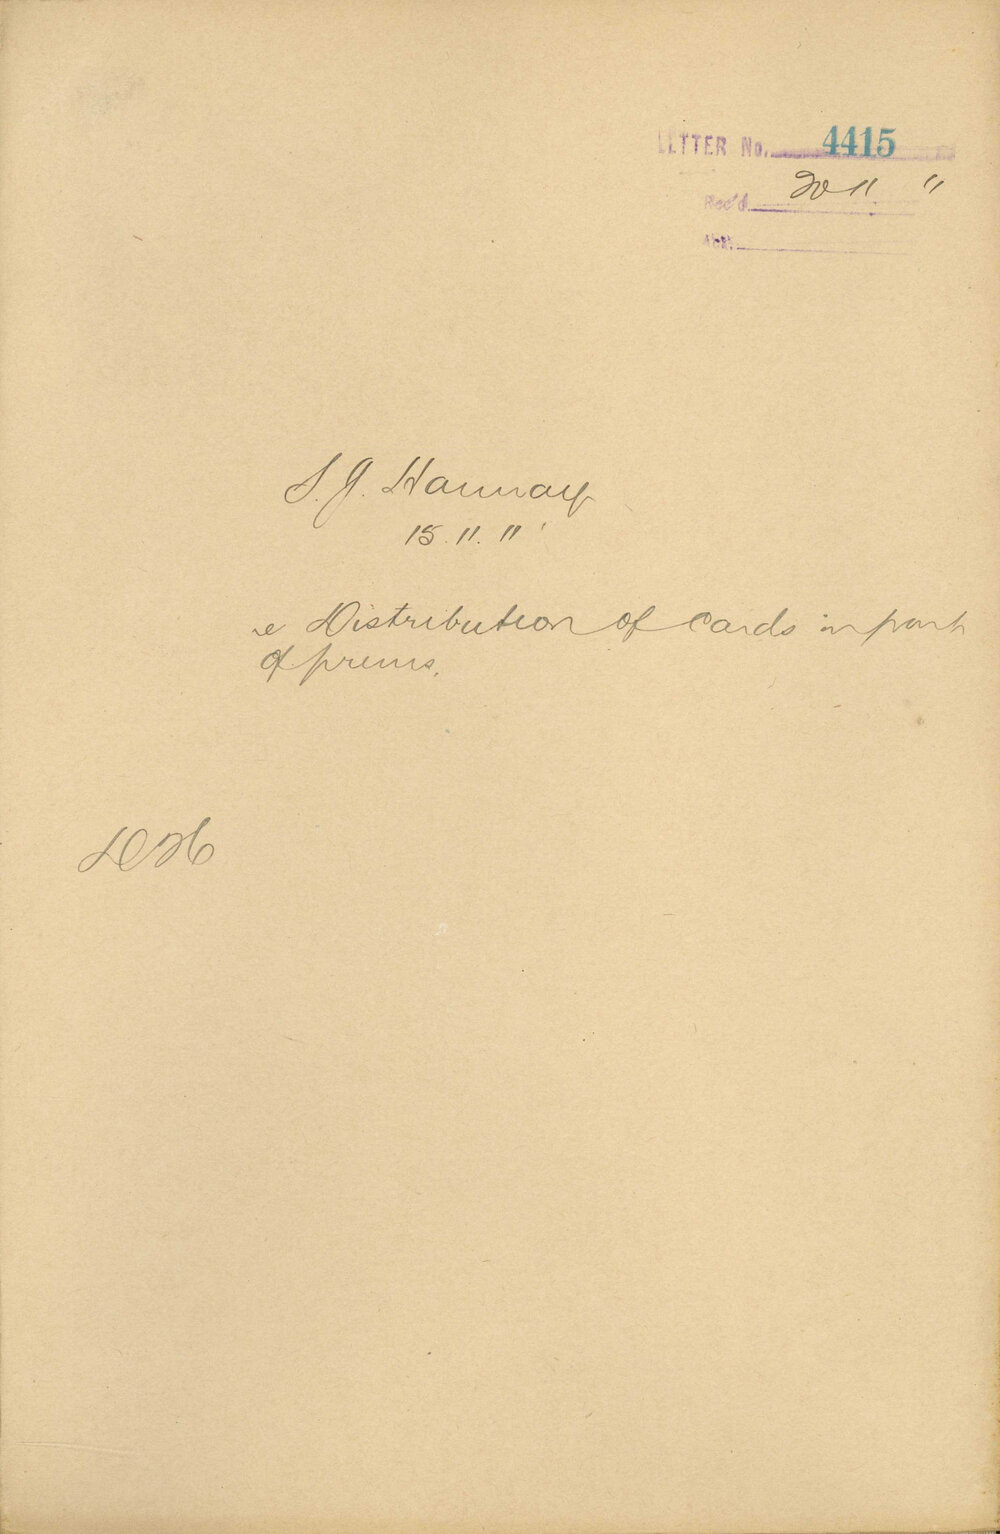 LETTER No. 4415
Rec'd 20 11 11
Ack.
S. J. Hannay
15. 11. 11
re Distribution of cards in front
of prems.